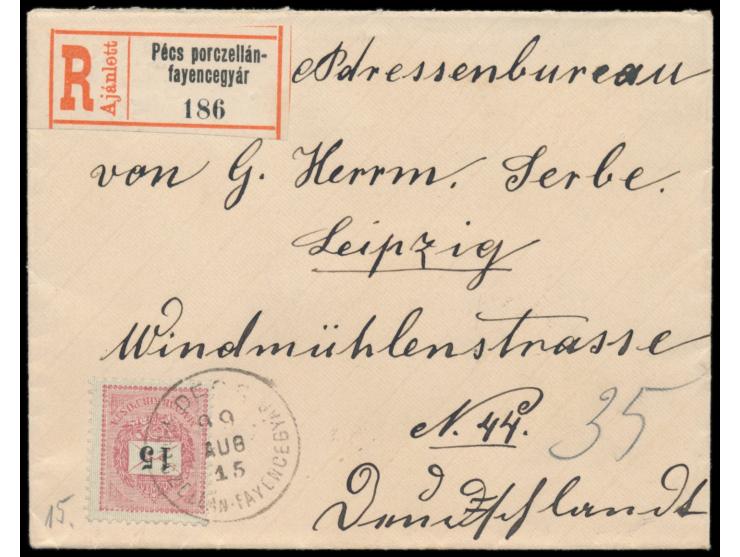 R Ajánlott
Pécs porczellán-
fayencegyár
186
Adressenbureau
von G. Herrm. Serbe.
Leipzig
Windmühlenstrasse
N. 44.
35
Deutschlandt
PÉCS
99
AUG
15
-FAYENCEGYÁR
15
15.